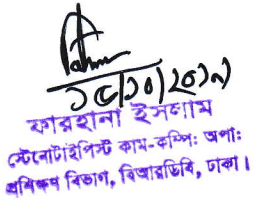 ১৫/১০/২০১৭
ফারহানা ইসলাম
স্টেনোটাইপিস্ট কাম-কম্পিঃ অপাঃ
প্রশিক্ষণ বিভাগ, বিআরডিবি, ঢাকা।